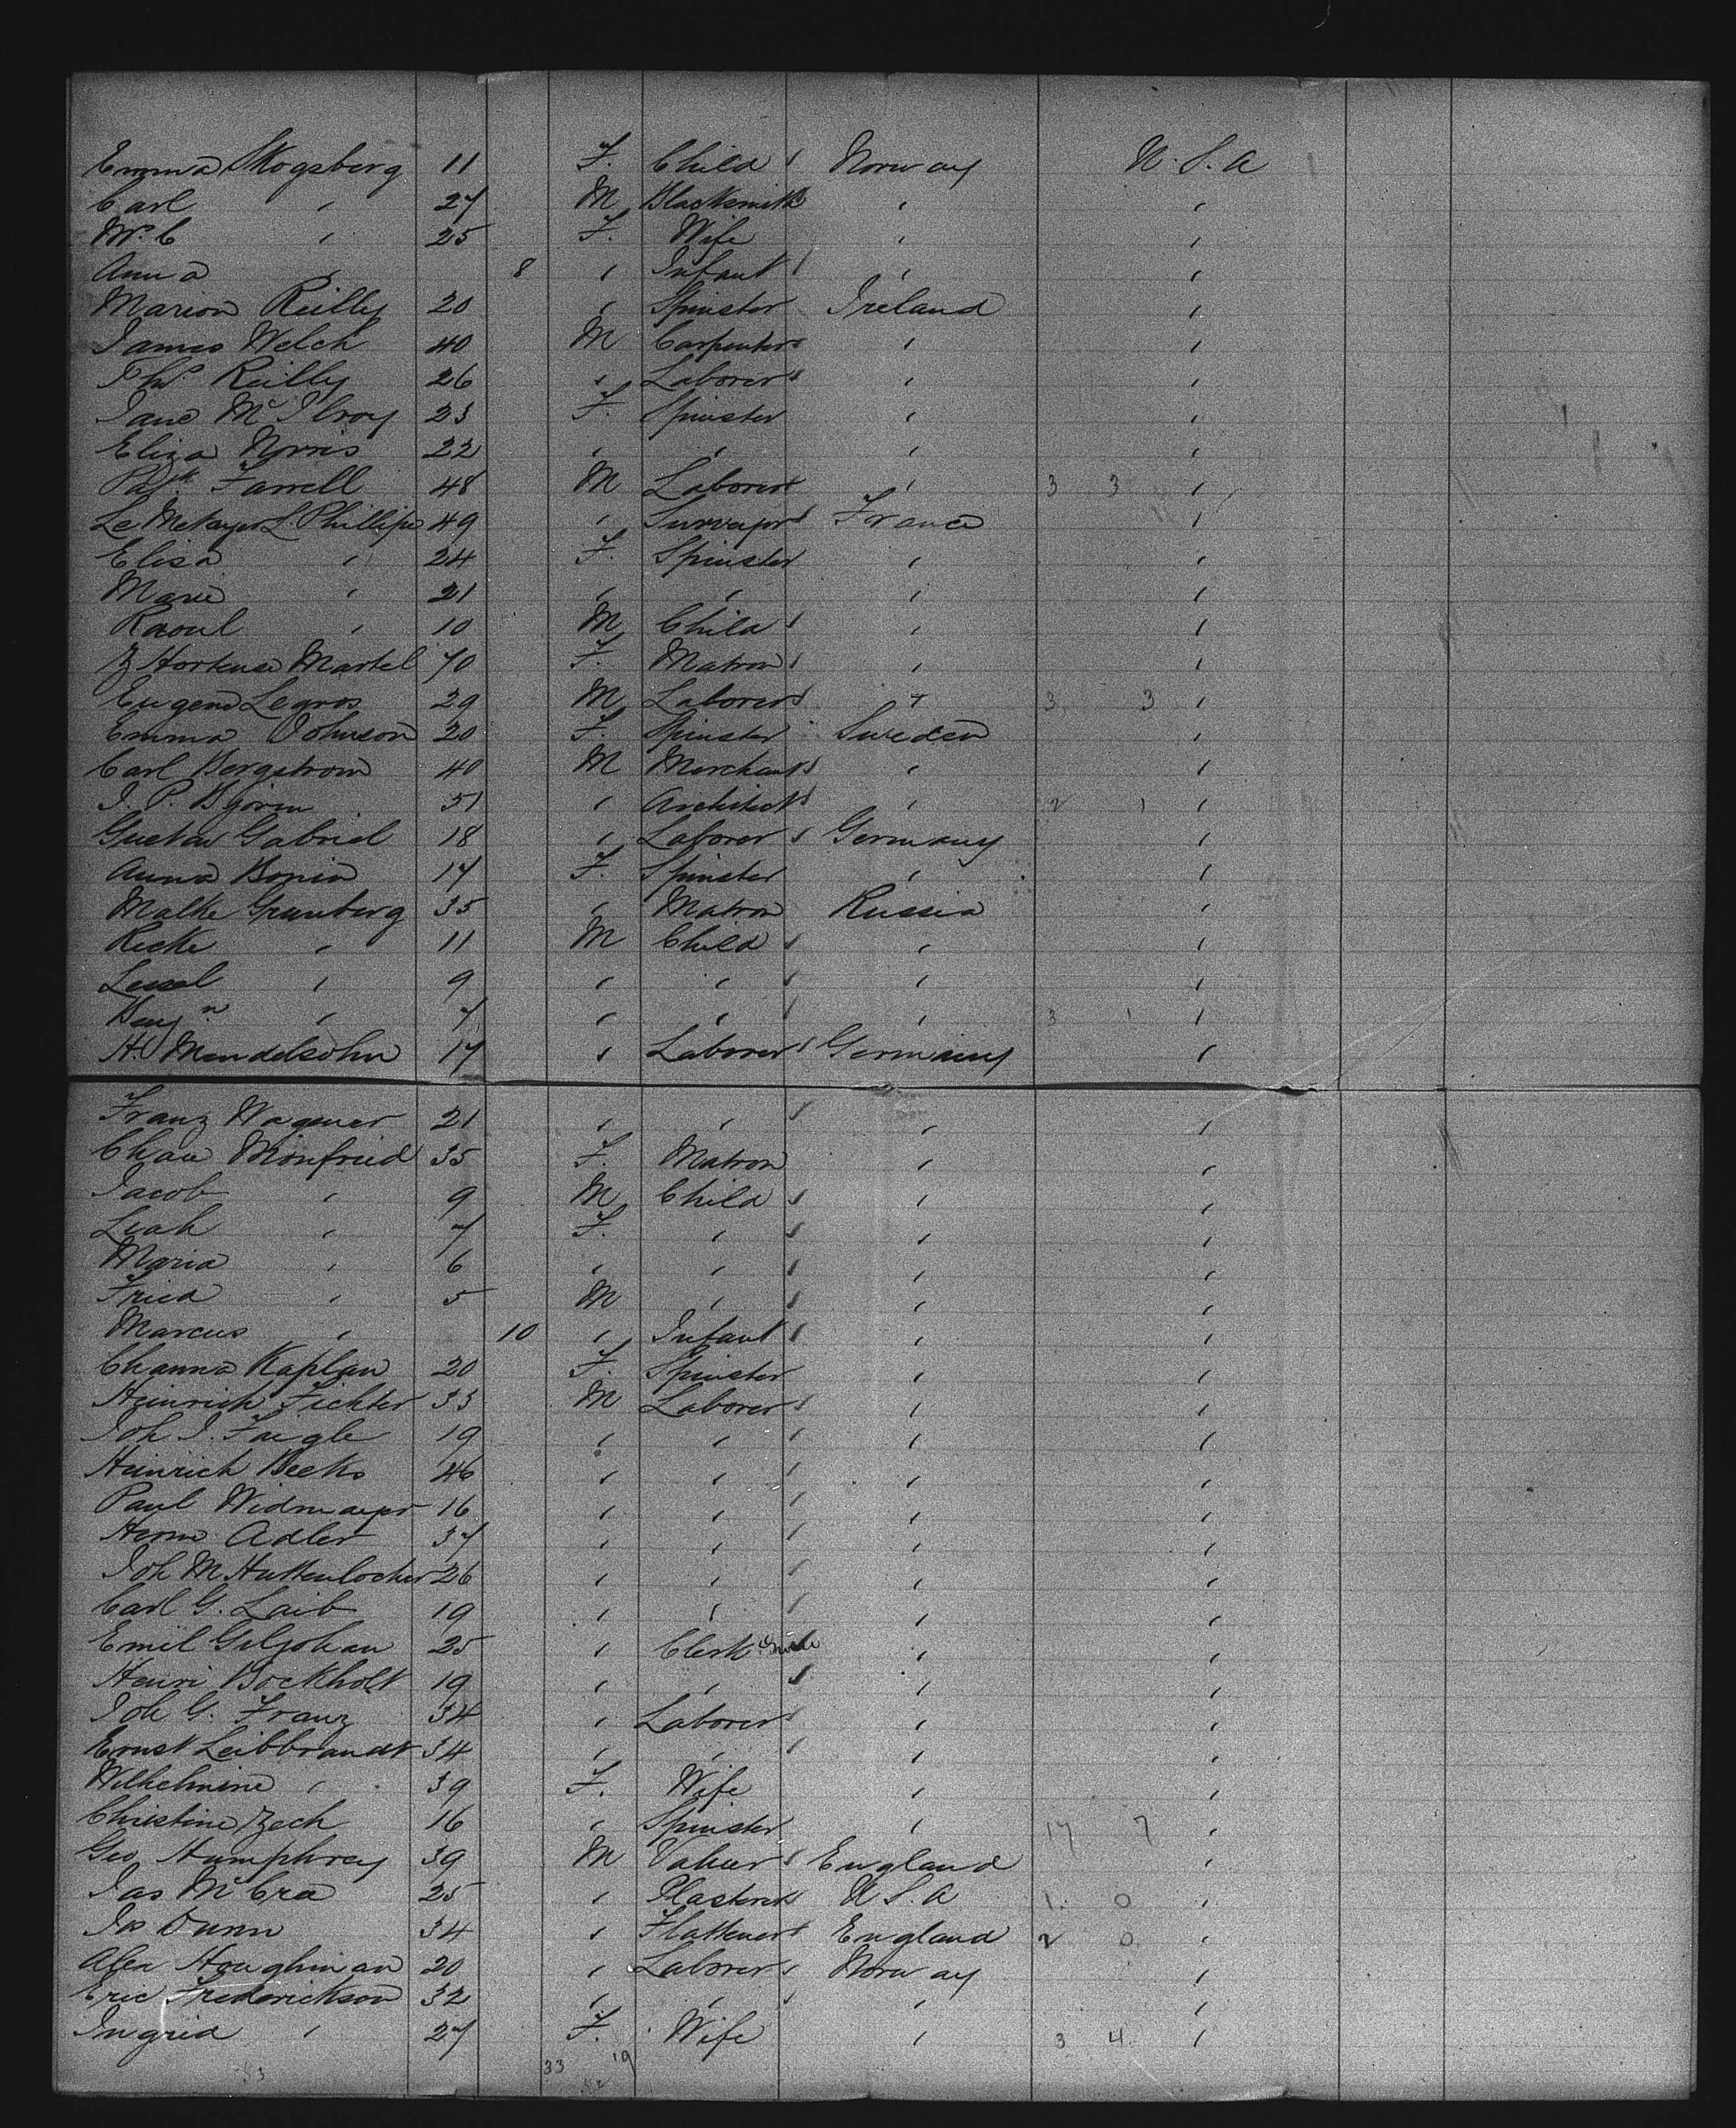 Emma Skogsberg 11 F. Child Norway U.S.A
Carl " 27 M Blacksmith " "
Mrs C " 25 F. Wife " "
Anna " 8 " Infant " "
Marion Reilly 20 " Spinster Ireland "
James Welch 40 M Carpenter " "
Thos Reilly 26 " Laborer " "
Jane McIlroy 23 F. Spinster " "
Eliza Norris 22 " " " "
Patk Farrell 48 M Laborer " 3 3 "
Le Metayer L. Phillipe 49 " Surveyor France "
Elisa " 24 F. Spinster " "
Marie " 21 " " " "
Raoul " 10 M Child " "
Z Hortense Martel 70 F. Matron " "
Eugene Legros 29 M Laborer " 3 3 "
Emma Johnson 20 F. Spinster Sweden "
Carl Bergstrom 40 M Merchant " "
J. P. Bjorin 51 " Architect " 2 1 "
Gustav Gabriel 18 " Laborer Germany "
Anna Bonin 17 F. Spinster " "
Malke Grunberg 35 " Matron Russia "
Recke " 11 M Child " "
Lessel " 9 " " " "
Benjn " 7 " " " 3 1 "
H. Mendelsohn 17 " Laborer Germany "
Franz Wagener 21 " " " "
Chaie Monfried 35 F. Matron " "
Jacob " 9 M Child " "
Leah " 7 F. " " "
Maria " 6 " " " "
Fried " 5 M " " "
Marcus " 10 " Infant " "
Channa Kaplan 20 F. Spinster " "
Heinrich Fichter 33 M Laborer " "
Joh J. Faigle 19 " " " "
Heinrich Beeks 46 " " " "
Paul Widmayer 16 " " " "
Herm Adler 37 " " " "
Joh M Huttenlocher 26 " " " "
Carl G. Laib 19 " " " "
Emil Giljohan 25 " Clerk " "
Henri Bockholt 19 " " " "
Joh G. Franz 34 " Laborer " "
Ernst Leibbrandt 34 " " " "
Wilhelmine " 39 F. Wife " "
Christine Zech 16 " Spinster " 17 7 "
Geo Humphrey 39 M Valuer England "
Jas McCra 25 " Plasterer U.S.A 1 0 "
Js Dunn 34 " Flattener England 2 0 "
Alex Houghman 20 " Laborer Norway "
Eric Frederickson 32 " " " "
Ingrid " 27 F. Wife " 3 4 "
53 33 19